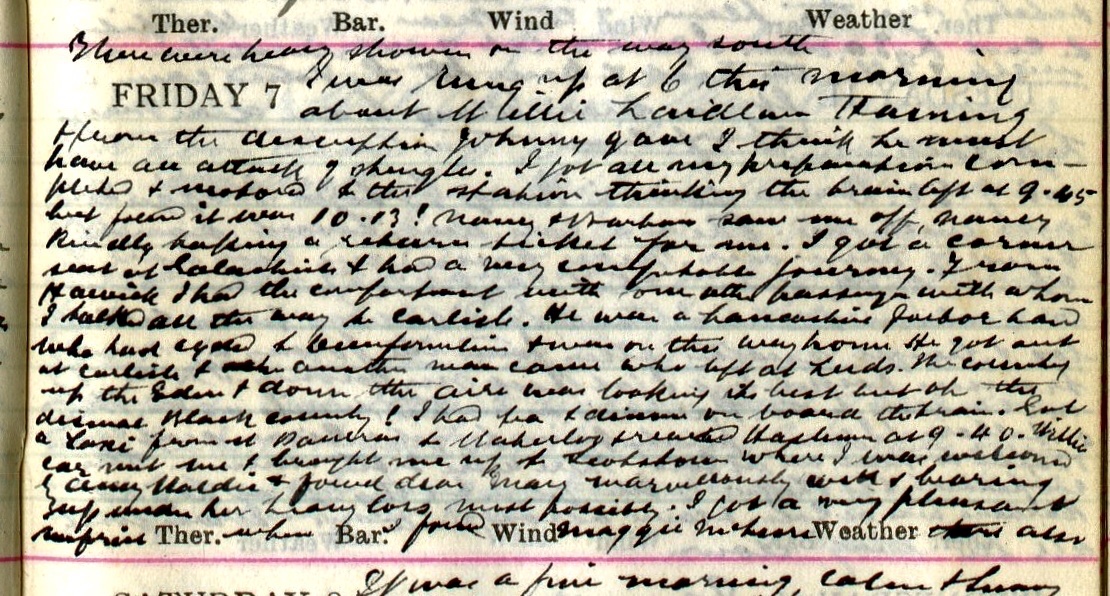 Ther. Bar. Wind Weather
There were heavy showers on the way south
FRIDAY 7 I was rung up at 6 this morning
about Willie Laidlaw
& from the description Johnny gave I think he must
have an attack of shingles. I got all my preparations com-
pleted & motored to the station thinking the train left at 9.45
but found it was 10.13! Nancy & saw me off, Nancy
kindly taking a return ticket for me. I got a corner
seat at Galashiels & had a very comfortable journey. From
Hawick I had the compartment with one other passenger with whom
I talked all the way to Carlisle. He was a Lancashire
who had cycled to & was on the way home He got out
at Carlisle & another man came who left at Leeds. The country
up the Eden & down the Aire was looking its best but oh the
dismal Black country! I had tea & dinner on board the train. Got
a Taxi from St Pancras to Waterloo & reached at 9.40. Willie
car met me & brought me up to where I was welcomed
by & found dear Mary marvellously well & bearing
up under her heavy loss most possibly. I got a very pleasant
surprise when found Maggie there also
Ther. Bar. Wind Weather
It was a fine morning, calm & sunny